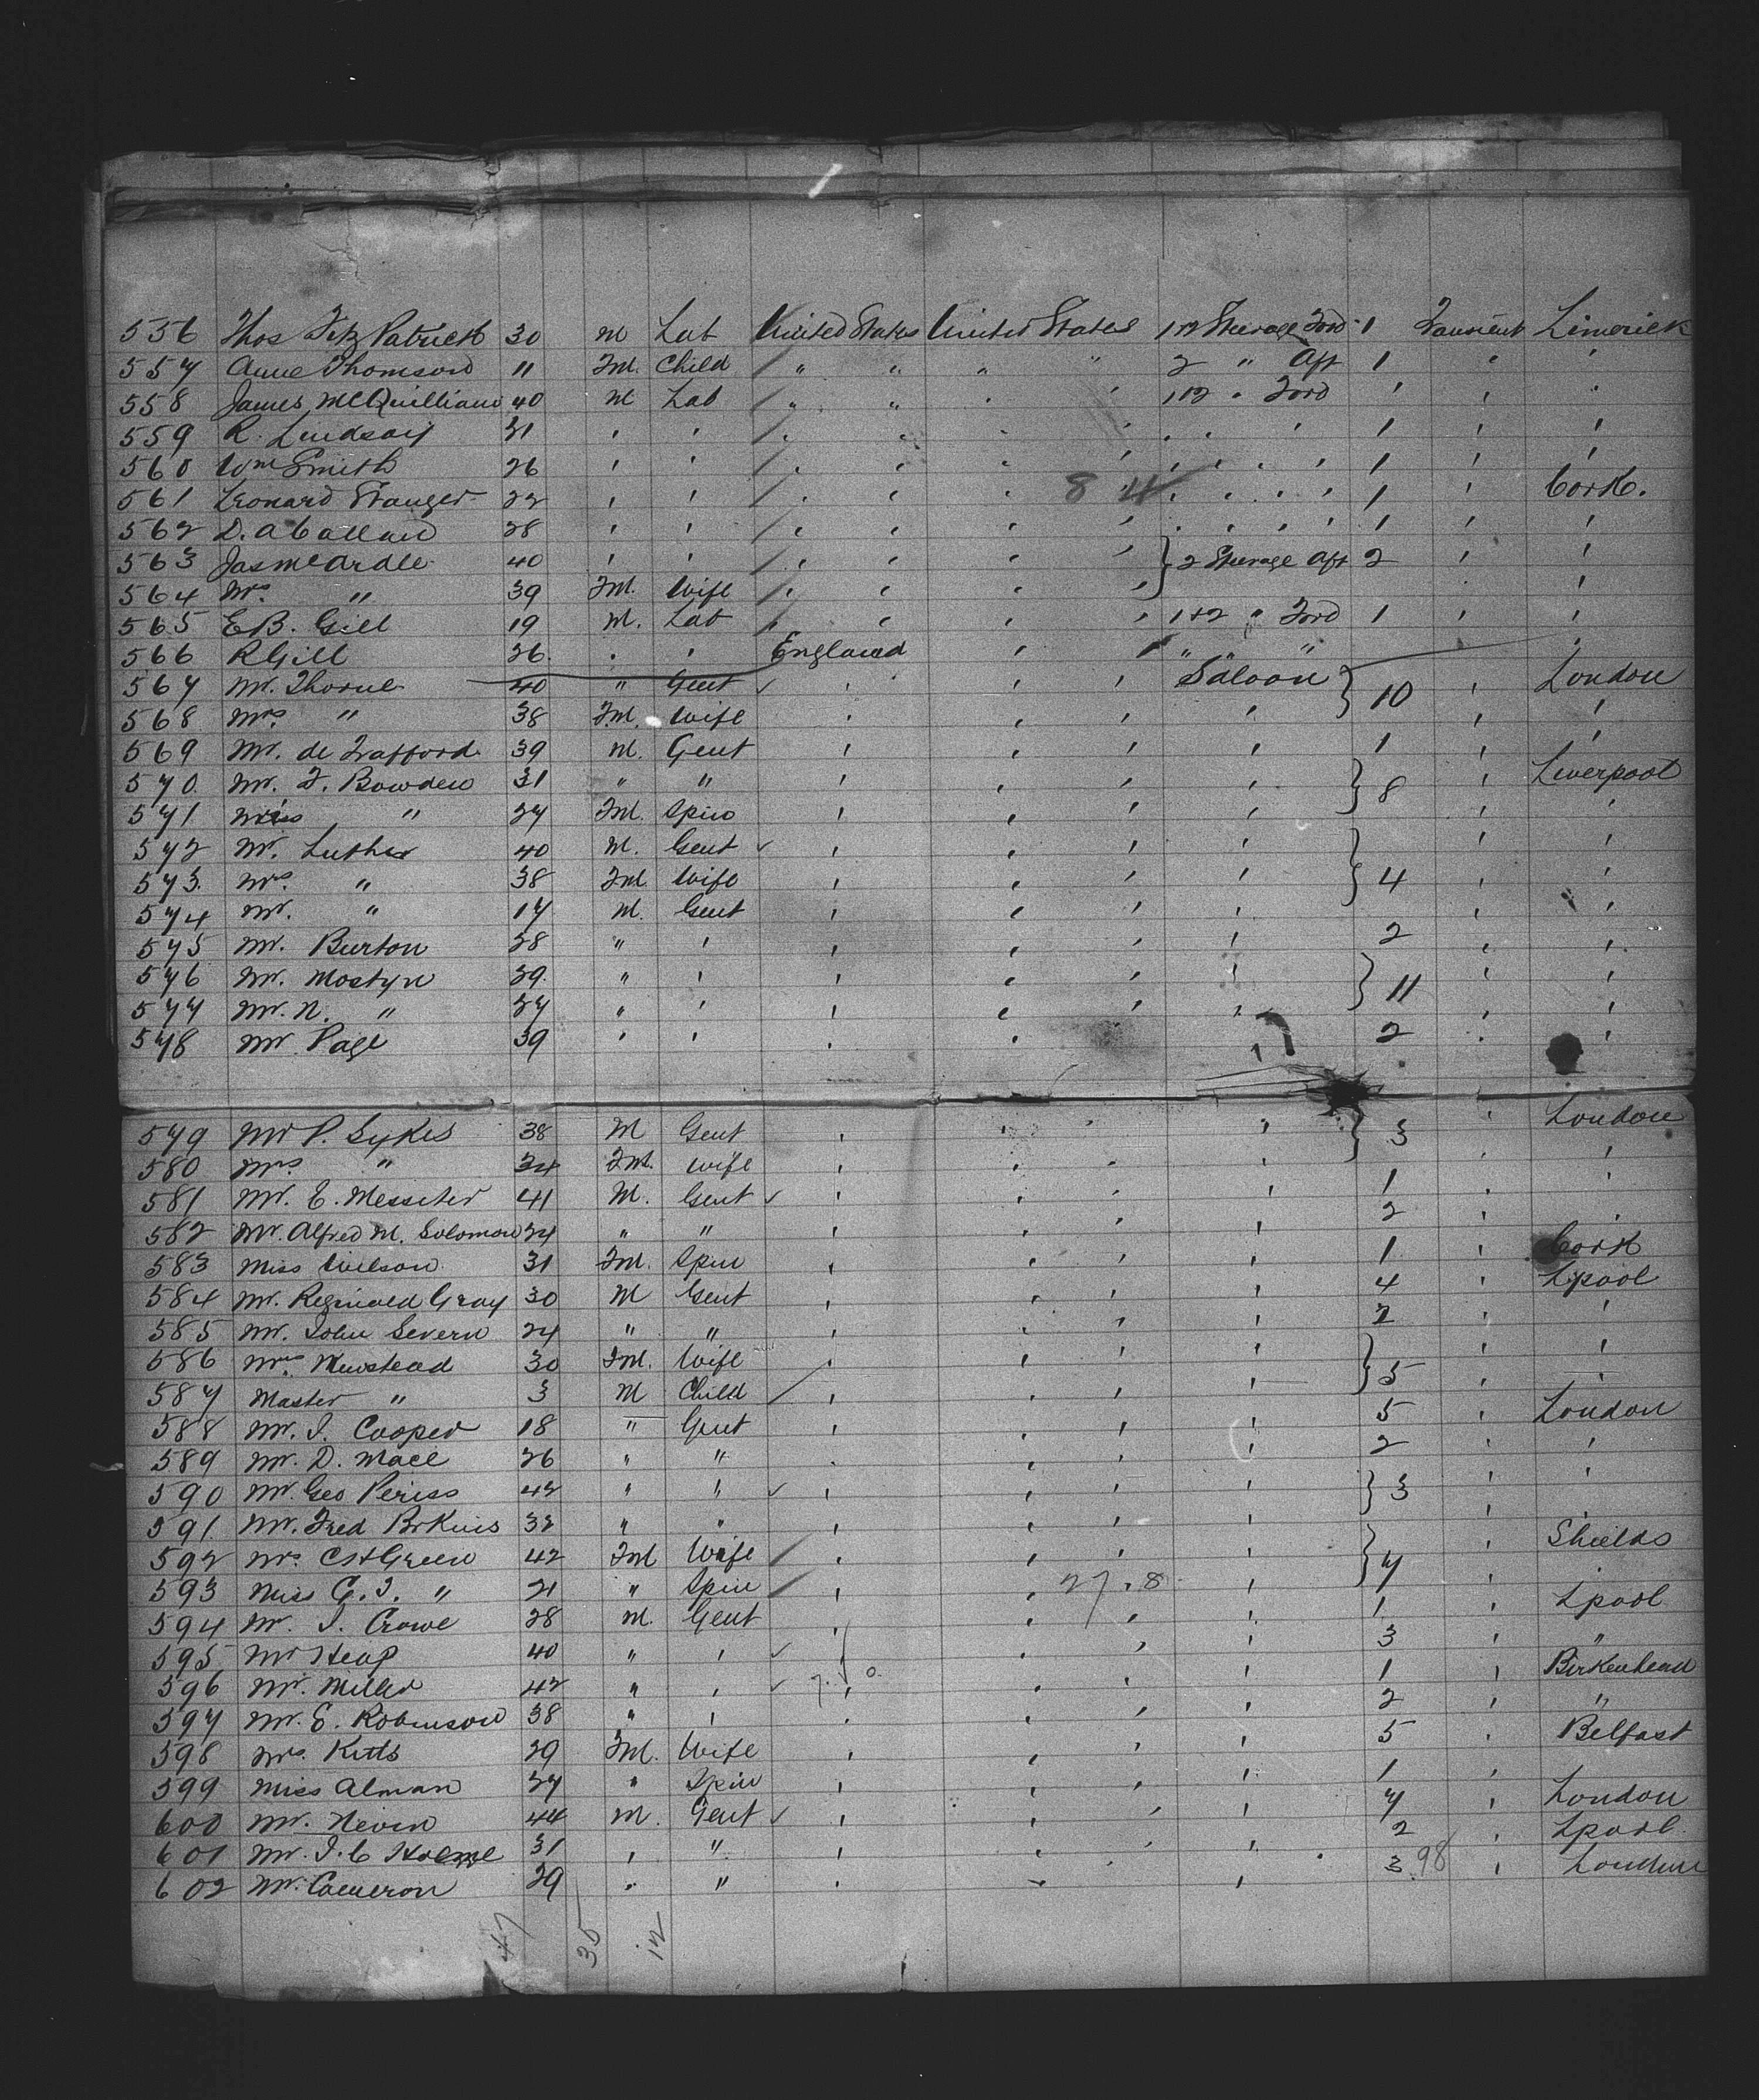 556 Thos FitzPatrick 30 M Lab United States United States 1+2 Steerage Ford 1 Transient Limerick
557 Anne Thomson 11 Fm. Child / " " " " 2 " Aft 1 " '
558 James McQuilliam 40 M Lab " " ' ' 1+2 " Ford ' ' '
559 R. Lindsay 31 ' ' / ' ' ' ' ' ' ' 1 ' '
560 Wm Smith 26 ' ' / ' ' ' ' ' ' ' ' 1 ' '
561 Leonard Stanger 22 ' ' / ' ' ' 8 4 ' ' ' ' ' 1 ' Cork.
562 D. a Callan 28 ' ' / ' ' ' ' ' ' ' ' ' 1 ' '
563 Jas McArdle 40 ' ' / ' ' ' ' } 2 Steerage Aft 2 ' '
564 Mrs " 39 Fm. Wife / ' ' ' ' '
565 E B. Gill 19 M. Lab ' ' ' ' 1+2 " Ford 1 ' '
566 R Gill 26. ' ' England ' ' " " " '
567 Mr. Thorne 40 " Gent ✓ ' ' ' Saloon } 10 ' London
568 Mrs " 38 Fm. Wife ' ' ' ' ' '
569 Mr. de Trafford 39 M. Gent ' ' ' ' 1 ' '
570 Mr. F. Bowden 31 " " ' ' ' ' } 8 ' Liverpool
571 Miss " 27 Fm. Spin ' ' ' ' ' '
572 Mr. Luther 40 M. Gent ✓ ' ' ' ' } 4 ' '
573. Mrs. " 38 Fm Wife ' ' ' ' ' '
574 Mr. " 17 M. Gent ' ' ' ' ' '
575 Mr. Burton 28 " ' ' ' ' ' 2 ' '
576 Mr. Mostyn 29. " ' ' ' ' ' } 11 ' '
577 Mr. N. " 27 " ' ' ' ' ' ' '
578 Mr Page 39 ' ' ' ' 2 ' '
579 Mr P. Sykes 38 M Gent ' ' ' ' } 3 ' London
580 Mrs " 34 Fm. Wife ' ' ' ' ' '
581 Mr. E. Messiter 41 M. Gent ✓ ' ' ' 1 ' '
582 Mr. Alfred M. Solomon 24 " " ' ' ' 2 ' '
583 Miss Wilson 31 Fm. Spin ' ' ' ' 1 ' Cork
584 Mr. Reginald Gray 30 M Gent ' ' ' ' 4 ' Lpool
585 Mr. John Severn 24 " " ' ' ' ' 2 ' '
586 Mrs. Newstead 30 Fm. Wife ' ' ' ' } 5 ' '
587 Master " 3 M Child / ' ' ' ' ' '
588 Mr. I. Cooper 18 " Gent ' ' ' ' 5 ' London
589 Mr. D. Mace 26 " " ' ' ' ' 2 ' '
590 Mr. Geo Periss 42 " " ✓ ' ' ' ' } 3 ' '
591 Mr. Fred 32 " " ' ' ' ' '
592 Mrs C H Green 42 Fm Wife / ' ' ' ' } 7 ' Shields
593 Miss C. I. " 21 " Spin / ' ' 27.8 '
594 Mr. I. Crowe 28 M. Gent ' ' ' ' 1 ' Lpool
595 Mr Heap 40 " ' ✓ ' ' ' 3 ' "
596 Mr. Miller 42 " ' ✓ ' ' ' ' 1 ' Birkenhead
597 Mr. E. Robinson 38 " ' ' ' ' 2 ' "
598 Mrs. Kitts 29 Fm. Wife ' ' ' ' 5 ' Belfast
599 Miss Alman 27 " Spin ' ' ' 1 '
600 Mr. Nevin 44 M. Gent ✓ ' ' ' ' 7 ' London
601 Mr. I. C 31 ' " ' ' ' ' 2 ' Lpool.
602 Mr. Cameron 29 ' " ' ' ' 3 98 ' London
47 35 12